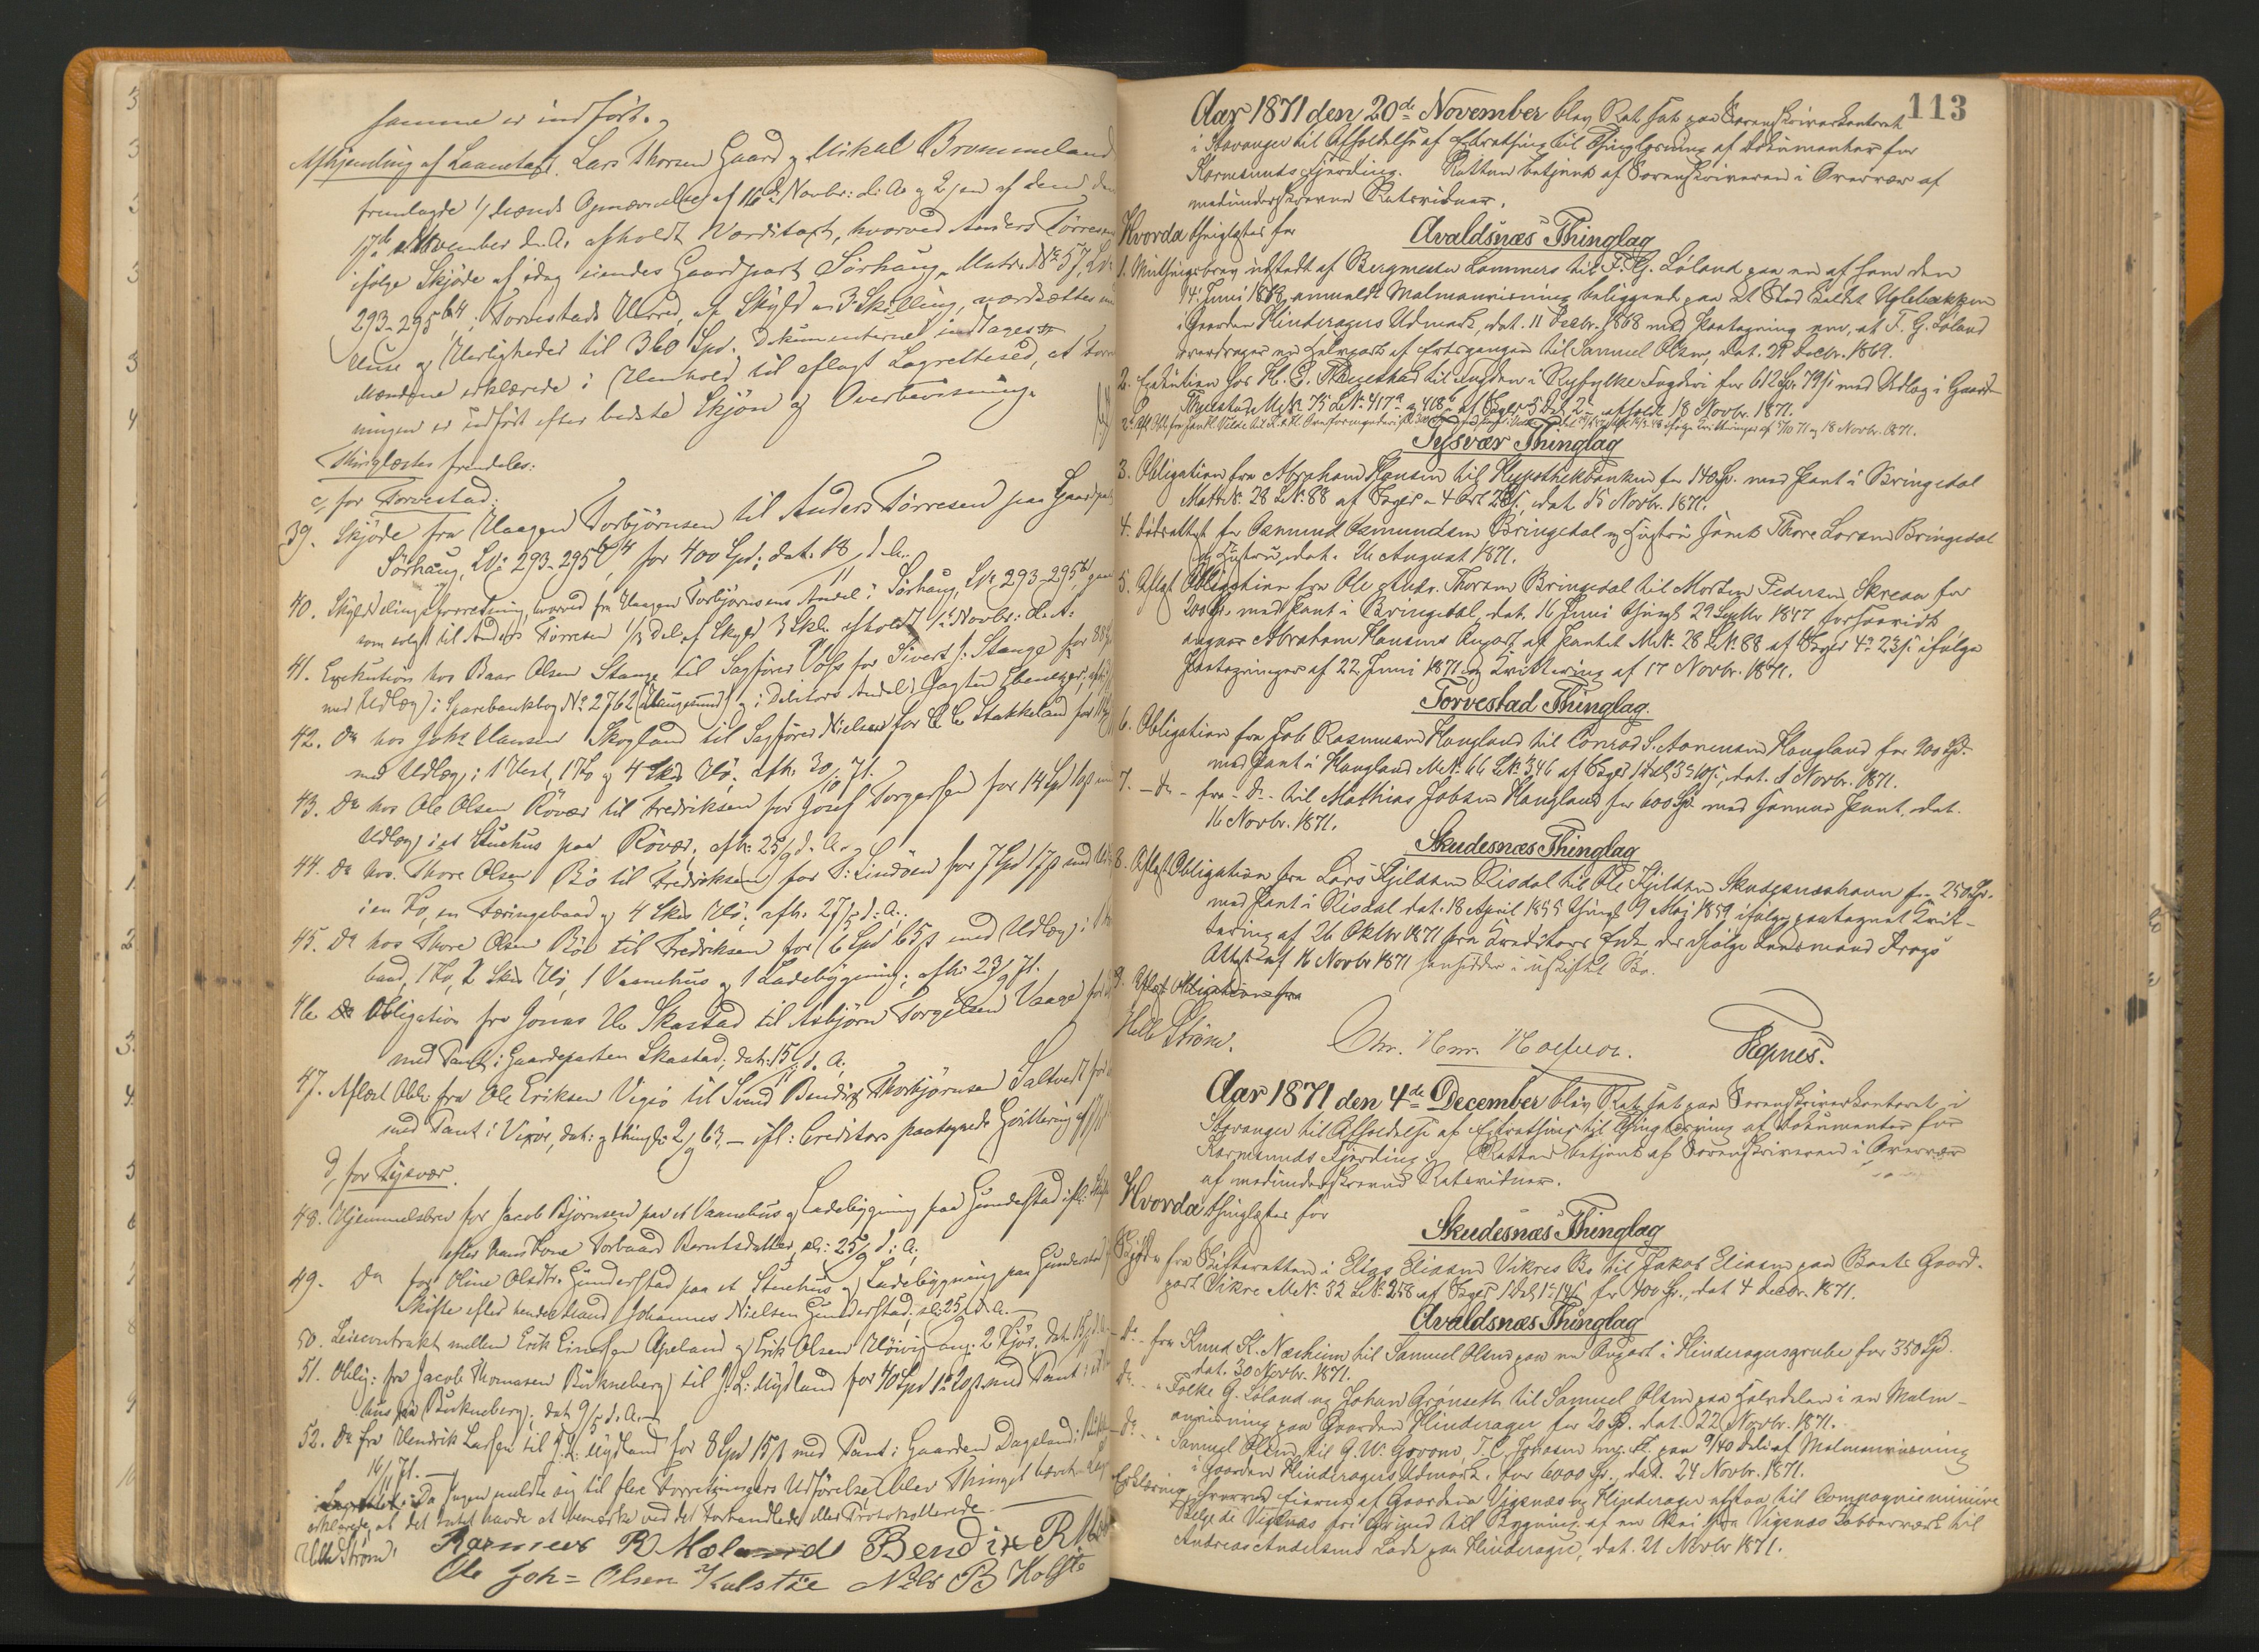 samme er indført.
Afhjemling af Laanetaxt. Lars Thorsen Gaard og Mikal Brommeland
fremlagde Opnævnelse af 16de Novbr: d: A: og 2 den af dem den
17de November d. A. afholdt Værditaxt, hvorved Anders Tørresens
ifølge Skjøde af idag eiendes Gaardpart Sørhaug, Matr. No 57, LNo
293-295 b4, i Torvestads Herred, af Skyld 3 Skilling, værdsættes
Huse og Herligheder til 360 Spd. Dokumenterne indtages
Mændene erklærede i Henhold til aflagt Lagrettesed, at Forret-
ningen er udført efter bedste Skjøn og Overbevisning.
Thinglæstes fremdeles:
c, for Torvestad:
39. Skjøde fra Haagen Torbjørnsen til Anders Tørresen paa Gaardpart
Sørhaug, LNo 293-295 b4 for 400 Spd; dat. 18/11 d. A.
40. Skylddelingsforretning, hvorved fra Haagen Torbjørnsens Andel i Sørhaug, LNo 293-295,
som solgt til Anders Tørresen 1/3 Del af Skyld 3 Skl. afholdt 1ste Novbr: d. A:
41. Exekution hos Baar Olsen Stange til Sagfører Vols for Sivert J. Stange for 88
med Udlæg i Sparebankbog No 2762 (Haugesund) og i Debitors Andel i Jagten Ebenezer,
42. Do hos Johs Hansen Skogland til Sagfører Nielsen for C. C. Stakkeland for
med Udlæg i 1 Hest, 1 Ko og 4 Læs Hø. afh. 30/10 71.
43. Do hos Ole Olsen Røvær til Fredriksen for Josef Torgersen for 14 Spd
Udlæg i et Stuehus paa Røvær, afh: 25/9 d. A.
44. Do hos Thore Olsen Bø til Fredriksen for S. Lindøen for 7 Spd 17 s med
i en Ko, en Færingsbaad og 4 Læs Hø. afh. 27/5 d: A..
45. Do hos Thore Olsen Bø til Fredriksen for 6 Spd 65 s med Udlæg i
baad, 1 Ko, 2 Læs Hø, 1 Vaanehus og 1 Ladebygning; afh. 23/9 71.
46. Obligation fra Jonas H. Skastad til Asbjørn Torgilsen Vaage
med Pant i Gaardeparten Skastad, dat. 15/11 d. A.
47. Aflæst Obl. fra Ole Eriksen Vigiø til Svend Bendix Thorbjørnsen Saltvedt
med Pant i Vixø, dat. og thingl. 2/9 63, - ifl: Creditors paategnede Qvittering af
d, for Tysvær.
48. Hjemmelsbrev for Jacob Bjørnsen paa et Vaanehus og Ladebygning paa Gunderstad ifl.
efter hans Kone Torbaar Berntsdatter, sl: 25/9 d. A;
49. Do for Oline Olsdtr. Gunderstad paa et Stuehus og Ladebygning paa Gunderstad
Skifte efter hendes Mand Johannes Nielsen Gunderstad, sl: 25/9 d. A.
50. Leiecontrakt mellem Erik Einersen Apeland og Erik Olsen Høivig ang: 2 Kjør,
51. Oblig: fra Jacob Thomasen Bukneberg til J. L. Mydland for 70 Spd med Pant i
hus paa Bukneberg; dat 9/5 d. A.
52. Do fra Hendrik Larsen til J. L. Mydland for 8 Spd 15 s med Pant i Gaarden Dagsland;
14/11 71.
Da Ingen meldte sig til flere Forretningers Udførelse blev Thinget hævet.
erklærede at det intet havde at bemærke ved det Forhandlede eller Protokollerede.
Helle Strøm. Rasmus R Mæland Bendix R.
Ole Joh= Olsen Kalstøe Nils B Kolstø
113
Aar 1871 den 20de November blev Ret sat paa Sorenskriverkontoret
i Stavanger til Afholdelse af Extrathing til Thinglæsning af Dokumenter for
Karmsunds Fjerding. Retten betjent af Sorenskriveren i Overvær af
medunderskrevne Retsvidner.
Hvorda thinglæstes for Avaldsnæs Thinglag
1. Muthingsbrev udstedt af Bergmester Lammers til F. G. Løland paa en af ham den
14. Juni 1868 anmeldt Malmanvisning beliggende paa et Sted kaldet Uglebækken
i Gaarden Hinderagers Udmark, dat. 11 Decbr. 1868 med Paategning om, at F. G. Løland
overdrager en Halvpart af Rettigangen til Samuel Olsen, dat. 29 Decbr. 1869.
2. Exekution hos H. E. Thuestad til Fogden i Ryfylke Fogderi for 612 Spd 79 s med Udlæg i Gaard
Thuestad M.No. 75 L.No. 417a og 418b afholdt 18 Novbr. 1871.
Tysvær Thinglag
3. Obligation fra Abraham Hansen til Hypothekbanken for 140 Sp. med Pant i Bringedal
Matr.No. 28 L.No. 88 af Skyld 4 Ort 23 s, dat. 15 Novbr. 1871.
4. Føderaadt for Osmund Osmundsen Bringedal og Hustru samt Thore Larsen Bringedal
og Hustru, dat. 26 August 1871.
5. Aflæst Obligation fra Ole Andr. Thorsen Bringedal til Morten Pedersen Skreaa for
200 Sp. med Pant i Bringedal, dat. 16 Juni thingl. 29 Septbr. 1847 forsaavidt
angaar Abraham Hansens Anpart af Pantet M.No. 28 L.No. 88 af Skyld 4 o 23 s ifølge
Paategninger af 22 Juni 1871 og Kvittering af 17 Novbr. 1871.
Torvestad Thinglag.
6. Obligation fra Job Rasmusen Haugland til Conrad S. Aanensen Haugland for 200 Sp.
med Pant i Haugland M.No. 66 L.No. 346 af Skyld 1 Dal. 3 o 10 s, dat. 1 Novbr. 1871.
7. - do - fra - do - til Mathias Jobsen Haugland for 600 Sp. med samme Pant, dat.
16 Novbr. 1871.
Skudesnæs Thinglag
8. Aflæst Obligation fra Lars Kjeldsen Risdal til Ole Kjeldsen Skudesnæshavn for 250 Sp.
med Pant i Risdal dat. 18 April 1855 thingl. 9 Maj 1859 ifølge paategnet Kvit-
tering af 26 Oktbr 1871 fra Kreditors Enke, der ifølge Lensmand Krogs
Attest af 16 Novbr 1871 hensidder i uskiftet Bo.
9. Aflæst Obligation fra
Helle Strøm. Tegnes.
Aar 1871 den 4de December blev Ret sat paa Sorenskriverkontoret i
Stavanger til Afholdelse af Extrathing til Thinglæsning af Dokumenter for
Karmsunds Fjerding. Retten betjent af Sorenskriveren i Overvær
af medunderskrevne Retsvidner.
Hvorda thinglæstes for
Skudesnæs Thinglag
Skjøde fra Skifteretten i Elias Eliasen Vikres Bo til Jakob Eliasen paa Boets Gaard-
part Vikre M.No. 32 L.No. 258 af Skyld 1 Dal. 1 o 14 s for 400 Sp., dat 4 Decbr. 1871.
Avaldsnæs Thinglag
- do - fra Knud K. Næsheim til Samuel Olsen paa en Anpart i Hinderagersgrube for 350 Sp.
dat. 30 Novbr. 1871.
do - " Folke G. Løland og Johan Grønseth til Samuel Olsen paa Halvdelen i en Malm-
anvisning paa Gaarden Hinderager for 20 Sp. dat. 22 Novbr. 1871.
- do - " Samuel Olsen til G. W. , T. C. Johnsen m. fl. paa 9/40 Dele af Malmanvisning
i Gaarden Hinderagers Udmark. for 6000 Sp., dat. 24 Novbr. 1871.
Erklæring, hvorved Eierne af Gaardene Vigsnæs og Hinderager afstaa til Compagnie minière
Belge de Vigsnæs fri Grund til Bygning af en Vei fra Vigsnæs Kobberværk til
Andreas Andersens Lade paa Hinderager, dat. 21 Novbr 1871.